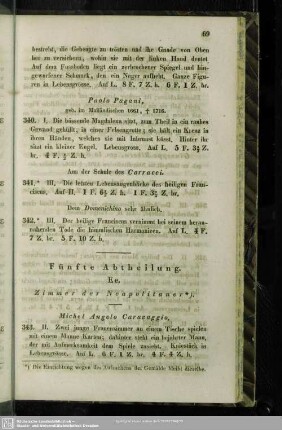 69
bestrebt, die Gebeugte zu trösten und ihr Gnade von Oben
her zu versichern, wohin sie mit der linken Hand deutet
Auf dem Fussboden liegt ein zerbrochener Spiegel und hin-
geworfener Schmuck, den ein Neger aufhebt. Ganze Figu-
ren in Lebensgrösse. Auf L. 8 F. 7 Z. h. 6 F. 1 Z. br.
Paolo Pagani,
geb. im Mailändischen 1661, † 1716.
340. I. Die büssende Magdalena sitzt, zum Theil in ein rothes
Gewand gehüllt, in einer Felsengrotte; sie hält ein Kreuz in
ihren Händen, welches sie mit Inbrunst küsst. Hinter ihr
sitzt ein kleiner Engel. Lebensgross. Auf L. 5 F. 3½ Z.
br. 4 F. ½ Z. h.
Aus der Schule des Carracci.
341.* III. Die letzten Lebensaugenblicke des heiligen Fran-
ciscus. Auf H. 1 F. 6½ Z. h. 1 F. 3½ Z. br.
Dem Domenichino sehr ähnlich.
342.* III. Der heilige Franciscus vernimmt bei seinem heran-
nahenden Tode die himmlischen Harmonieen. Auf L. 4 F.
7 Z. br. 5 F. 10 Z. h.
Fünfte Abtheilung.
Ee.
Zimmer der Neapolitaner*).
Michel Angelo Caravaggio,
343. II. Zwei junge Frauenzimmer an einem Tische spielen
mit einem Manne Karten; dahinter steht ein bejahrter Mann,
der mit Aufmerksamkeit dem Spiele zusieht. Kniestück in
Lebensgrösse. Auf L. 6 F. 1 Z. br. 4 F. 4 Z. h.
*) Die Einrichtung wegen des Aufsuchens der Gemälde bleibt dieselbe.